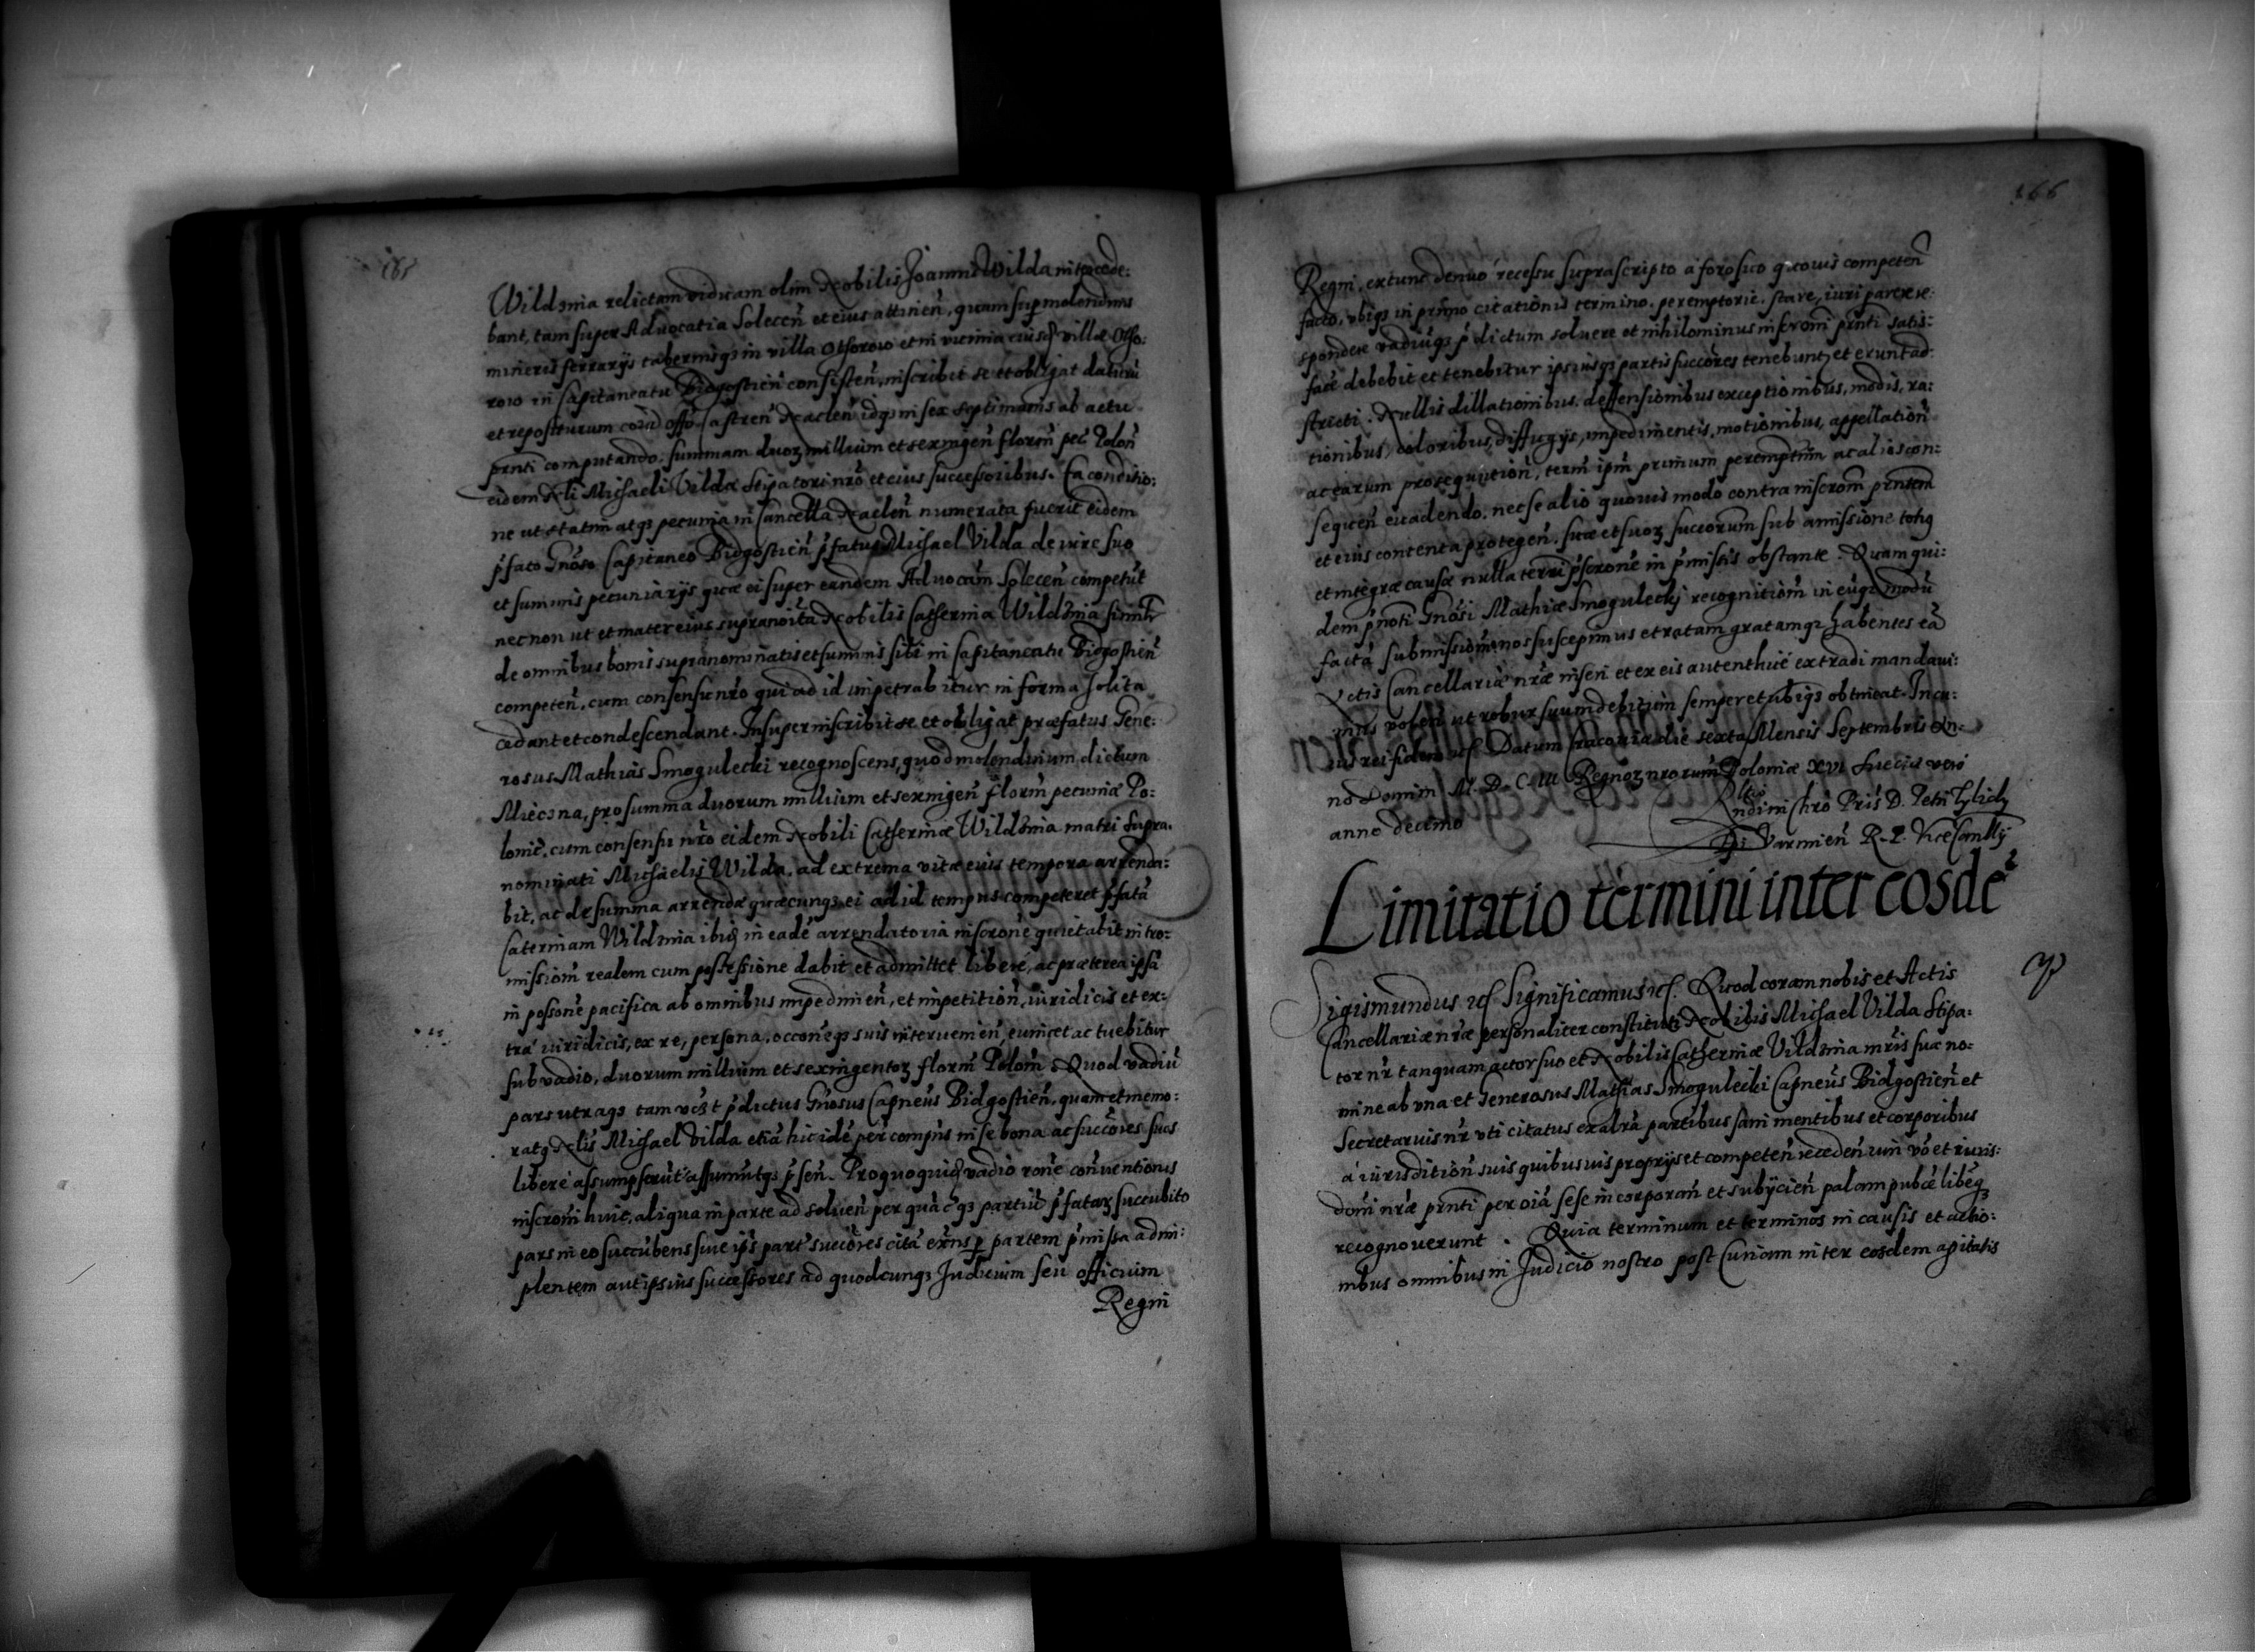 185
Wildzina relictam viduam olim Nobilis Joannis Wilda intercede:
bant, tam super Advocatia Solecen̄ et eius attinen̄, quam sup molendinis
mineris ferrarijs tabernisq₃ in villa Osforow et in vicinia eiusd villæ Osfo:
row in Capitaneatu Bidgostien̄ consisten̄, inscribit se et obligat daturū
et repositurum corā offō Castren̄ Naclen̄ idq₃ in sex septimanis ab actu
pn̄ti computando, summam duoꝝ millium et sexingen̄ floren̄ pec Polon̄
eidem Nli Michaeli Vildæ Stipatori nrō et eius successoribus. Ea conditio:
ne ut statim atq₃ pecunia in Cancella Naclen̄ numerata fuerit eidem
p̄fato Gn̄oso Capitaneo Bidgostien̄ p̄fatus Michael Vilda de iure suo
et summis pecuniarijs quæ ei super eandem Advocām Solecen̄ competūt
necnon ut et mater eius supranoīta Nobilis Catherina Wildzina similr
de omnibus bonis supranominatis et summis sibi in Capitaneatu Bidgostien̄
competen̄, cum consensu nrō qui ad id impetrabitur in forma solita
cedant et condescendant. Insuper inscribit se et obligat præfatus Gene:
rosus Mathias Smogulecki recognoscens, quod molendinum dictum
Miecz na, pro summa duorum millium et sexingen̄ floren̄ pecuniæ Po:
lonic, cum consensu nrō eidem Nobili Catherinæ Wildzina matri supra:
nominati Michaelis Wilda, ad extrema vitæ eius tempora arrenda:
bit, ac de summa arrendæ quæcunq₃ ei ad id tempus competeret p̄fatā
Caterinam Wildzina ibid in eadē arrendatoria inscrōne quietabit intro:
missiōm realem cum possessione dabit et admittet libere, ac præterea ipsā
in possōne pacifica ab omnibus impedimen̄, et impetitiōn̄, iuridicis et ex:
tra iuridicis, ex re, persona, occoneq₃ suis intervenien̄, evincet ac tuebitur
sub vadio, duorum millium et sexingentoꝝ floren̄ Polon̄. Quod vadiū
pars utraq₃ tam vꝫt p̄dictus Gn̄osus Capneus Bidgostien̄, quam et memo:
ratq Nlis Michael Vilda etiā hic idē per compn̄s in se bona ac succōres suos
libere assumpserūt assumūtq₃ p̄sen̄. Pro quoquid vadio rōne conventionis
inscrōni huic, aliqua in parte ad solven̄ per quāc q₃ partiū p̄fataꝝ succubito
pars in eo succubens sive ip̄s part succōres citā exn̄s p partem p̄missa adim:
plentem aut ipsius successores ad quodcunq₃ Judicium seu officium
Regni
166
Regni, extunc denuo recessu suprascripto a foro suo quovis competen̄
facto, ubiq₃ in primo citationis termino. peremptorie. stare, iuri parere re:
spondere vadiūq₃ p̄dictum solvere et nihilominus inscrōni pn̄ti satis:
face debebit et tenebitur ipsiusq₃ partis succōres tenebunt et erunt ad:
stricti. Nullis dillationibus, deffensionibus exceptionibus, modis, ra:
tionibus, coloribus, diffugijs, impedimentis, motionibus, appellatiōn̄
ac earum prosequutiōn̄, term̄ ipm̄ primum peremptūm ac alios con:
sequen̄ evadendo. nec se alio quovis modo contra inscrōm pn̄tem
et eius contenta protegen̄. suæ et suoꝝ succorum sub amissione totiq
et integræ causæ nulla terr̄i p̄scrōne in p̄missis obstante. Quam qui:
dem p̄noti Gnōsi Mathiæ Smoguleckj recognitiōm in euq₃ modū
factā submissiōm nos suscepimus et ratam gratamq₃ habentes eā
Actis Cancellariæ nræ inseri et ex eis autenthice extradi mandavi:
mus volen̄ ut robur suum debitum semper et ubiq₃ obtineat. In cu:
ius rei fidem ꝛc̄. Datum Cracoviæ die sexta Mensis Septembris An:
no Domini M. D. C. III Regnoꝝ nrorum Poloniæ XVI Sueciæ vero
anno decimo
Rltio
Rndi in Chrō Pris D. Petri Tylicky
Epi Varmien̄ R. P. Vicecanllrij
Limitatio termini inter eosdē
Sigismundus ꝛc̄ Significamus ꝛc̄. Quod coram nobis et Actis
Cancellariæ nræ personaliter constituti Nobilis Michael Vilda Stipa:
tor nr̄ tanquam actor suo et Nobilis Catherinæ Vildzina mris suæ no:
mine ab una et Generosus Mathias Smogulecki Capneus Bidgostien̄ et
Secretarius nr̄ uti citatus ex alrā partibus sani mentibus et corporibus
a iurisditiōn̄ suis quibusvis proprijs et competen̄ receden̄ iuri vō et iuris:
dōni nræ pn̄ti per oiā sese incorporan̄ et subijcien̄ palam pubce libeq₃
recognoverunt. Quia terminum et terminos in causis et actio:
nibus omnibus in Judicio nostro post Curiam inter eosdem agitatis